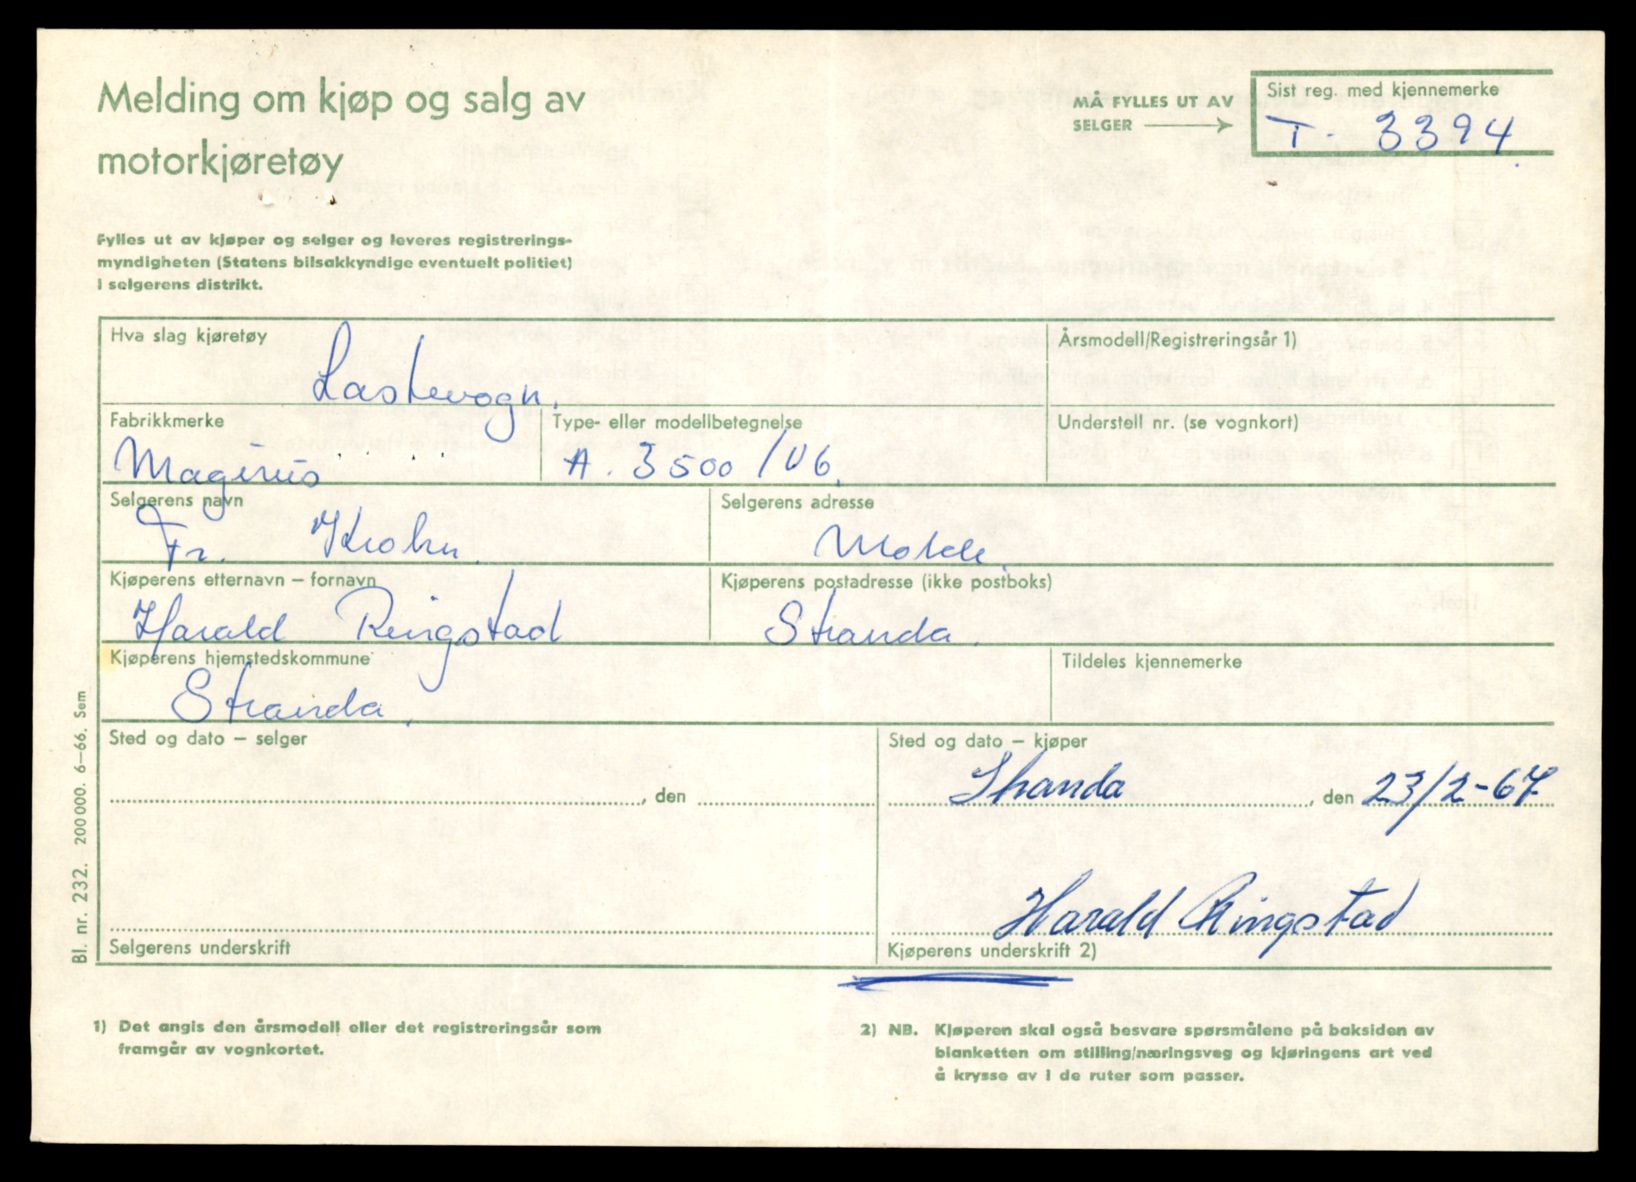 Melding om kjøp og salg av
motorkjøretøy
MÅ FYLLES UT AV
SELGER
Sist reg. med kjennemerke
T. 3394
Fylles ut av kjøper og selger og leveres registrerings-
myndigheten (Statens bilsakkyndige eventuelt politiet)
i selgerens distrikt.
Hva slag kjøretøy
Lastevogn.
Årsmodell/Registreringsår 1)
Fabrikkmerke
Magirus
Type- eller modellbetegnelse
A. 3500/V6.
Understell nr. (se vognkort)
Selgerens navn
Fr. Krohn.
Selgerens adresse
Molde.
Kjøperens etternavn – fornavn
Harald Ringstad
Kjøperens postadresse (ikke postboks)
Stranda.
Kjøperens hjemstedskommune
Stranda.
Tildeles kjennemerke
Sted og dato – selger
, den
Sted og dato – kjøper
Stranda, den 23/2-67
Selgerens underskrift
Harald Ringstad
Kjøperens underskrift 2)
Bl. nr. 232. 200 000. 6—66. Sem
1) Det angis den årsmodell eller det registreringsår som
framgår av vognkortet.
2) NB. Kjøperen skal også besvare spørsmålene på baksiden av
blanketten om stilling/næringsveg og kjøringens art ved
å krysse av i de ruter som passer.